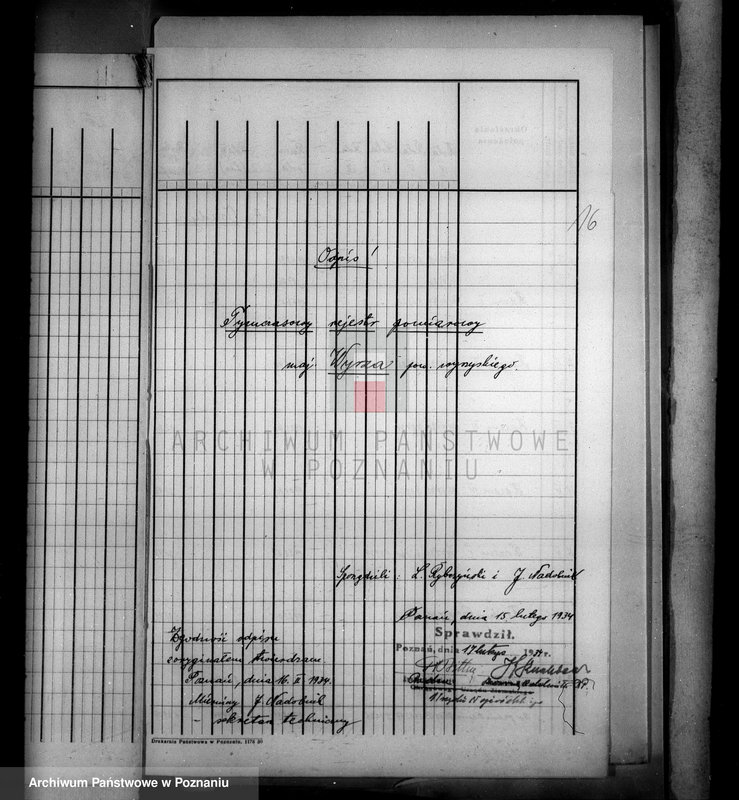 16
Odpis!
Tymczasowy rejestr pomiarowy
maj. Wyrza pow. wyrzyskiego.
ARCHIWUM PAŃSTWOWE
W POZNANIU
Sporządzili: L. Rybczyński i J. Nadobnik
Poznań, dnia 15 lutego 1934
Sprawdził.
Poznań, dnia 17 lutego 1934 r.
Zgodność odpisu
z oryginałem stwierdzam.
Poznań, dnia 16. II 1934.
Mierniczy J. Nadobnik
- sekretarz techniczny
Drukarnia Państwowa w Poznaniu. 1175 30
Archiwum Państwowe w Poznaniu